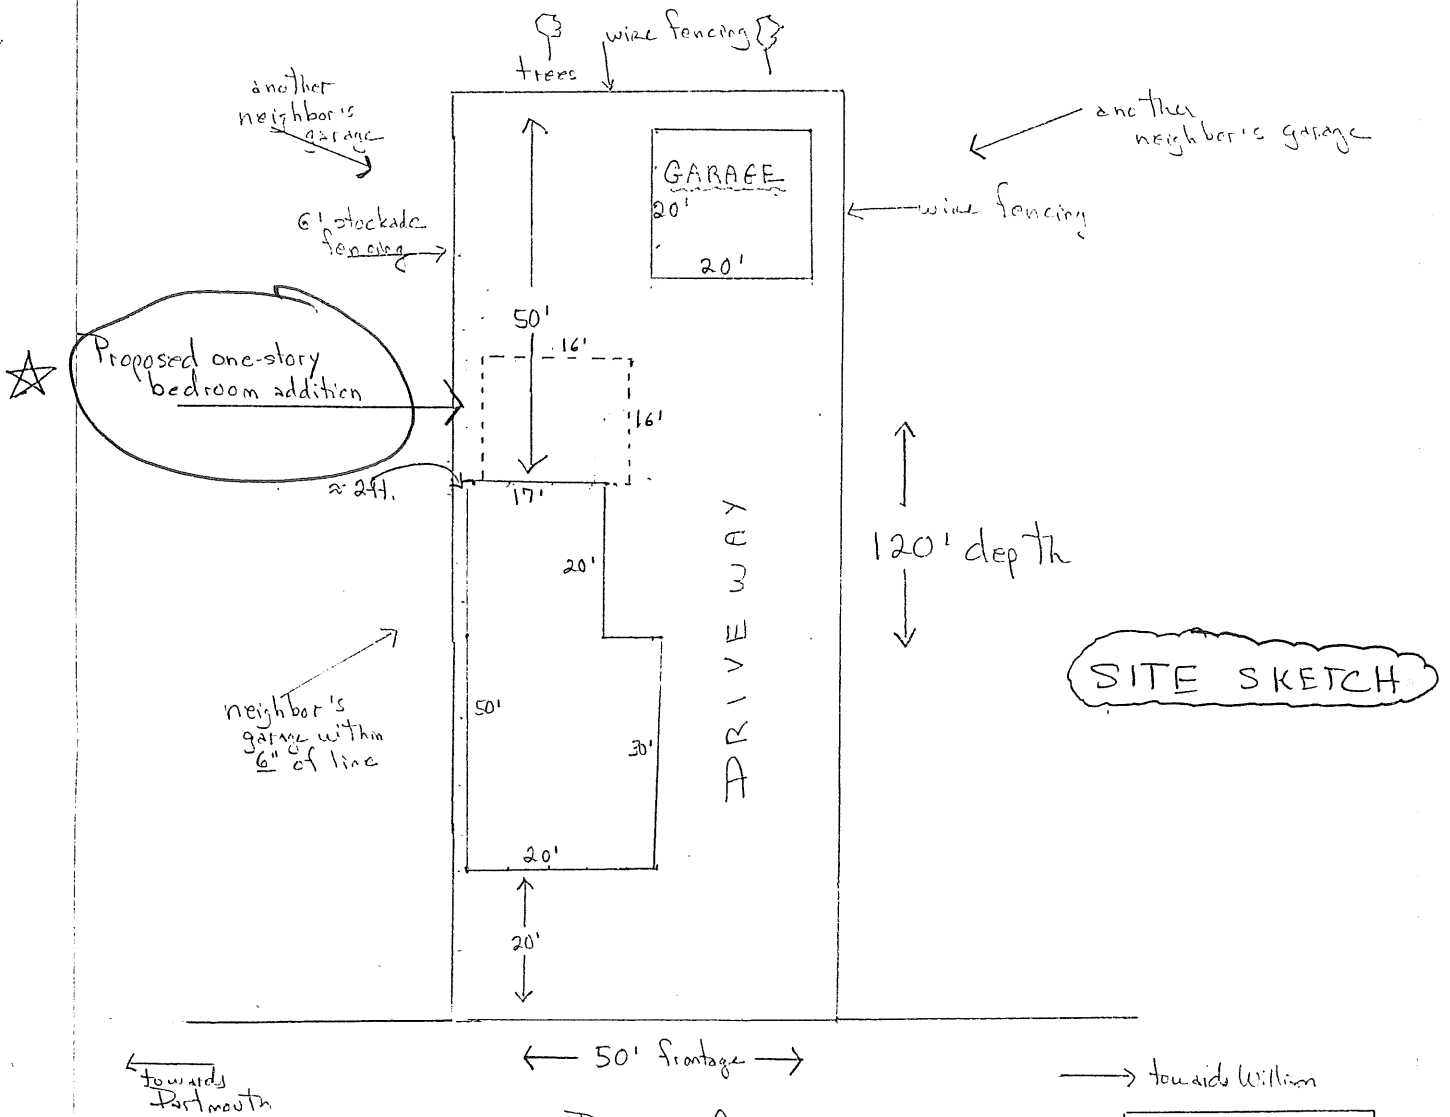 wire fencing
trees
another
neighbor's
garage
another
neighbor's garage
GARAGE
20'
20'
wire fencing
6' stockade
fencing
50'
16'
16'
Proposed one-story
bedroom addition
≈ 2ft.
17'
20'
DRIVEWAY
120' depth
SITE SKETCH
neighbor's
garage within
6" of line
50'
30'
20'
20'
50' frontage
towards
Dartmouth
towards William